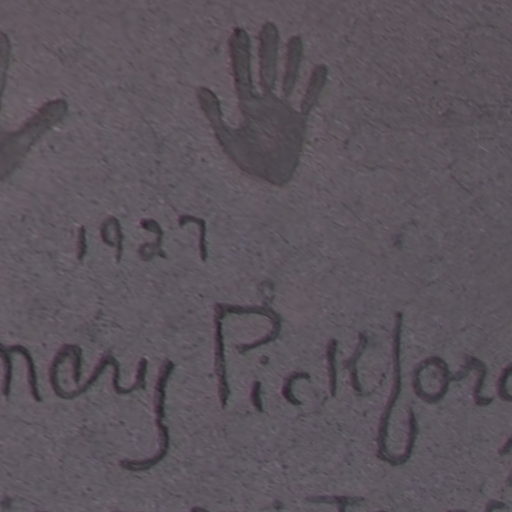 1927
Mary Pickford